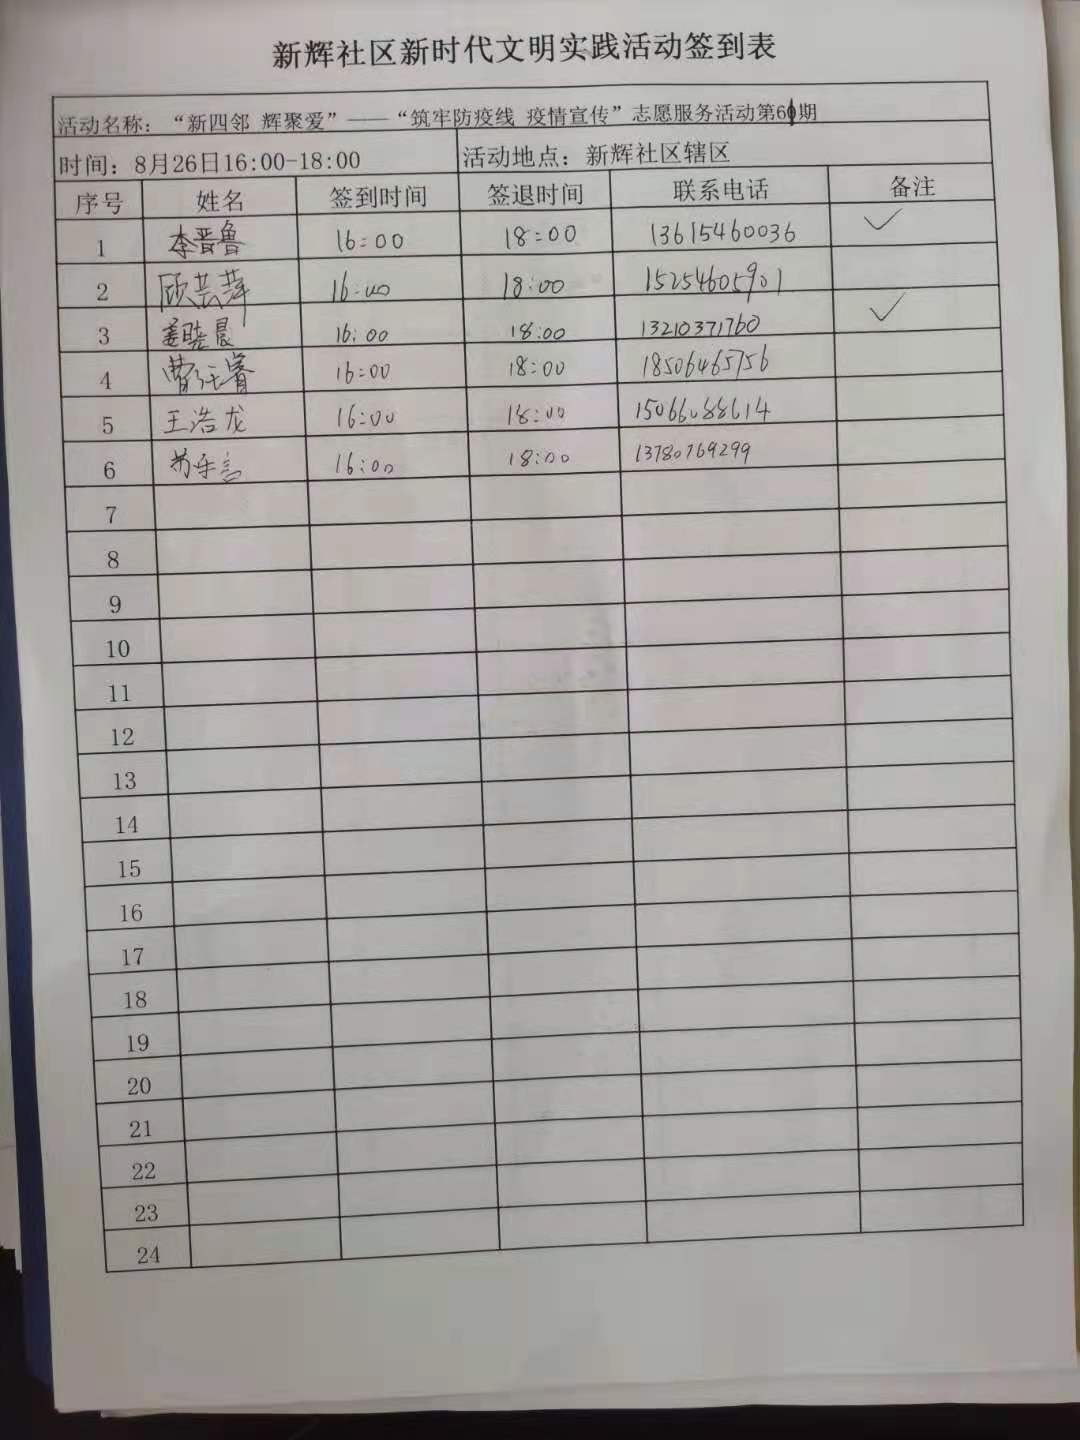 新辉社区新时代文明实践活动签到表
活动名称：“新四邻 辉聚爱”——“筑牢防疫线 疫情宣传”志愿服务活动第61期
时间：8月26日16:00-18:00 活动地点：新辉社区辖区
序号 姓名 签到时间 签退时间 联系电话 备注
1 李晋鲁 16:00 18:00 13615460036 ✓
2 顾芸萍 16:00 18:00 15254605901
3 姜晓晨 16:00 18:00 13210371760 ✓
4 曹 睿 16:00 18:00 18506465756
5 王浩龙 16:00 18:00 15066088614
6 苏乐言 16:00 18:00 13780769299
7
8
9
10
11
12
13
14
15
16
17
18
19
20
21
22
23
24